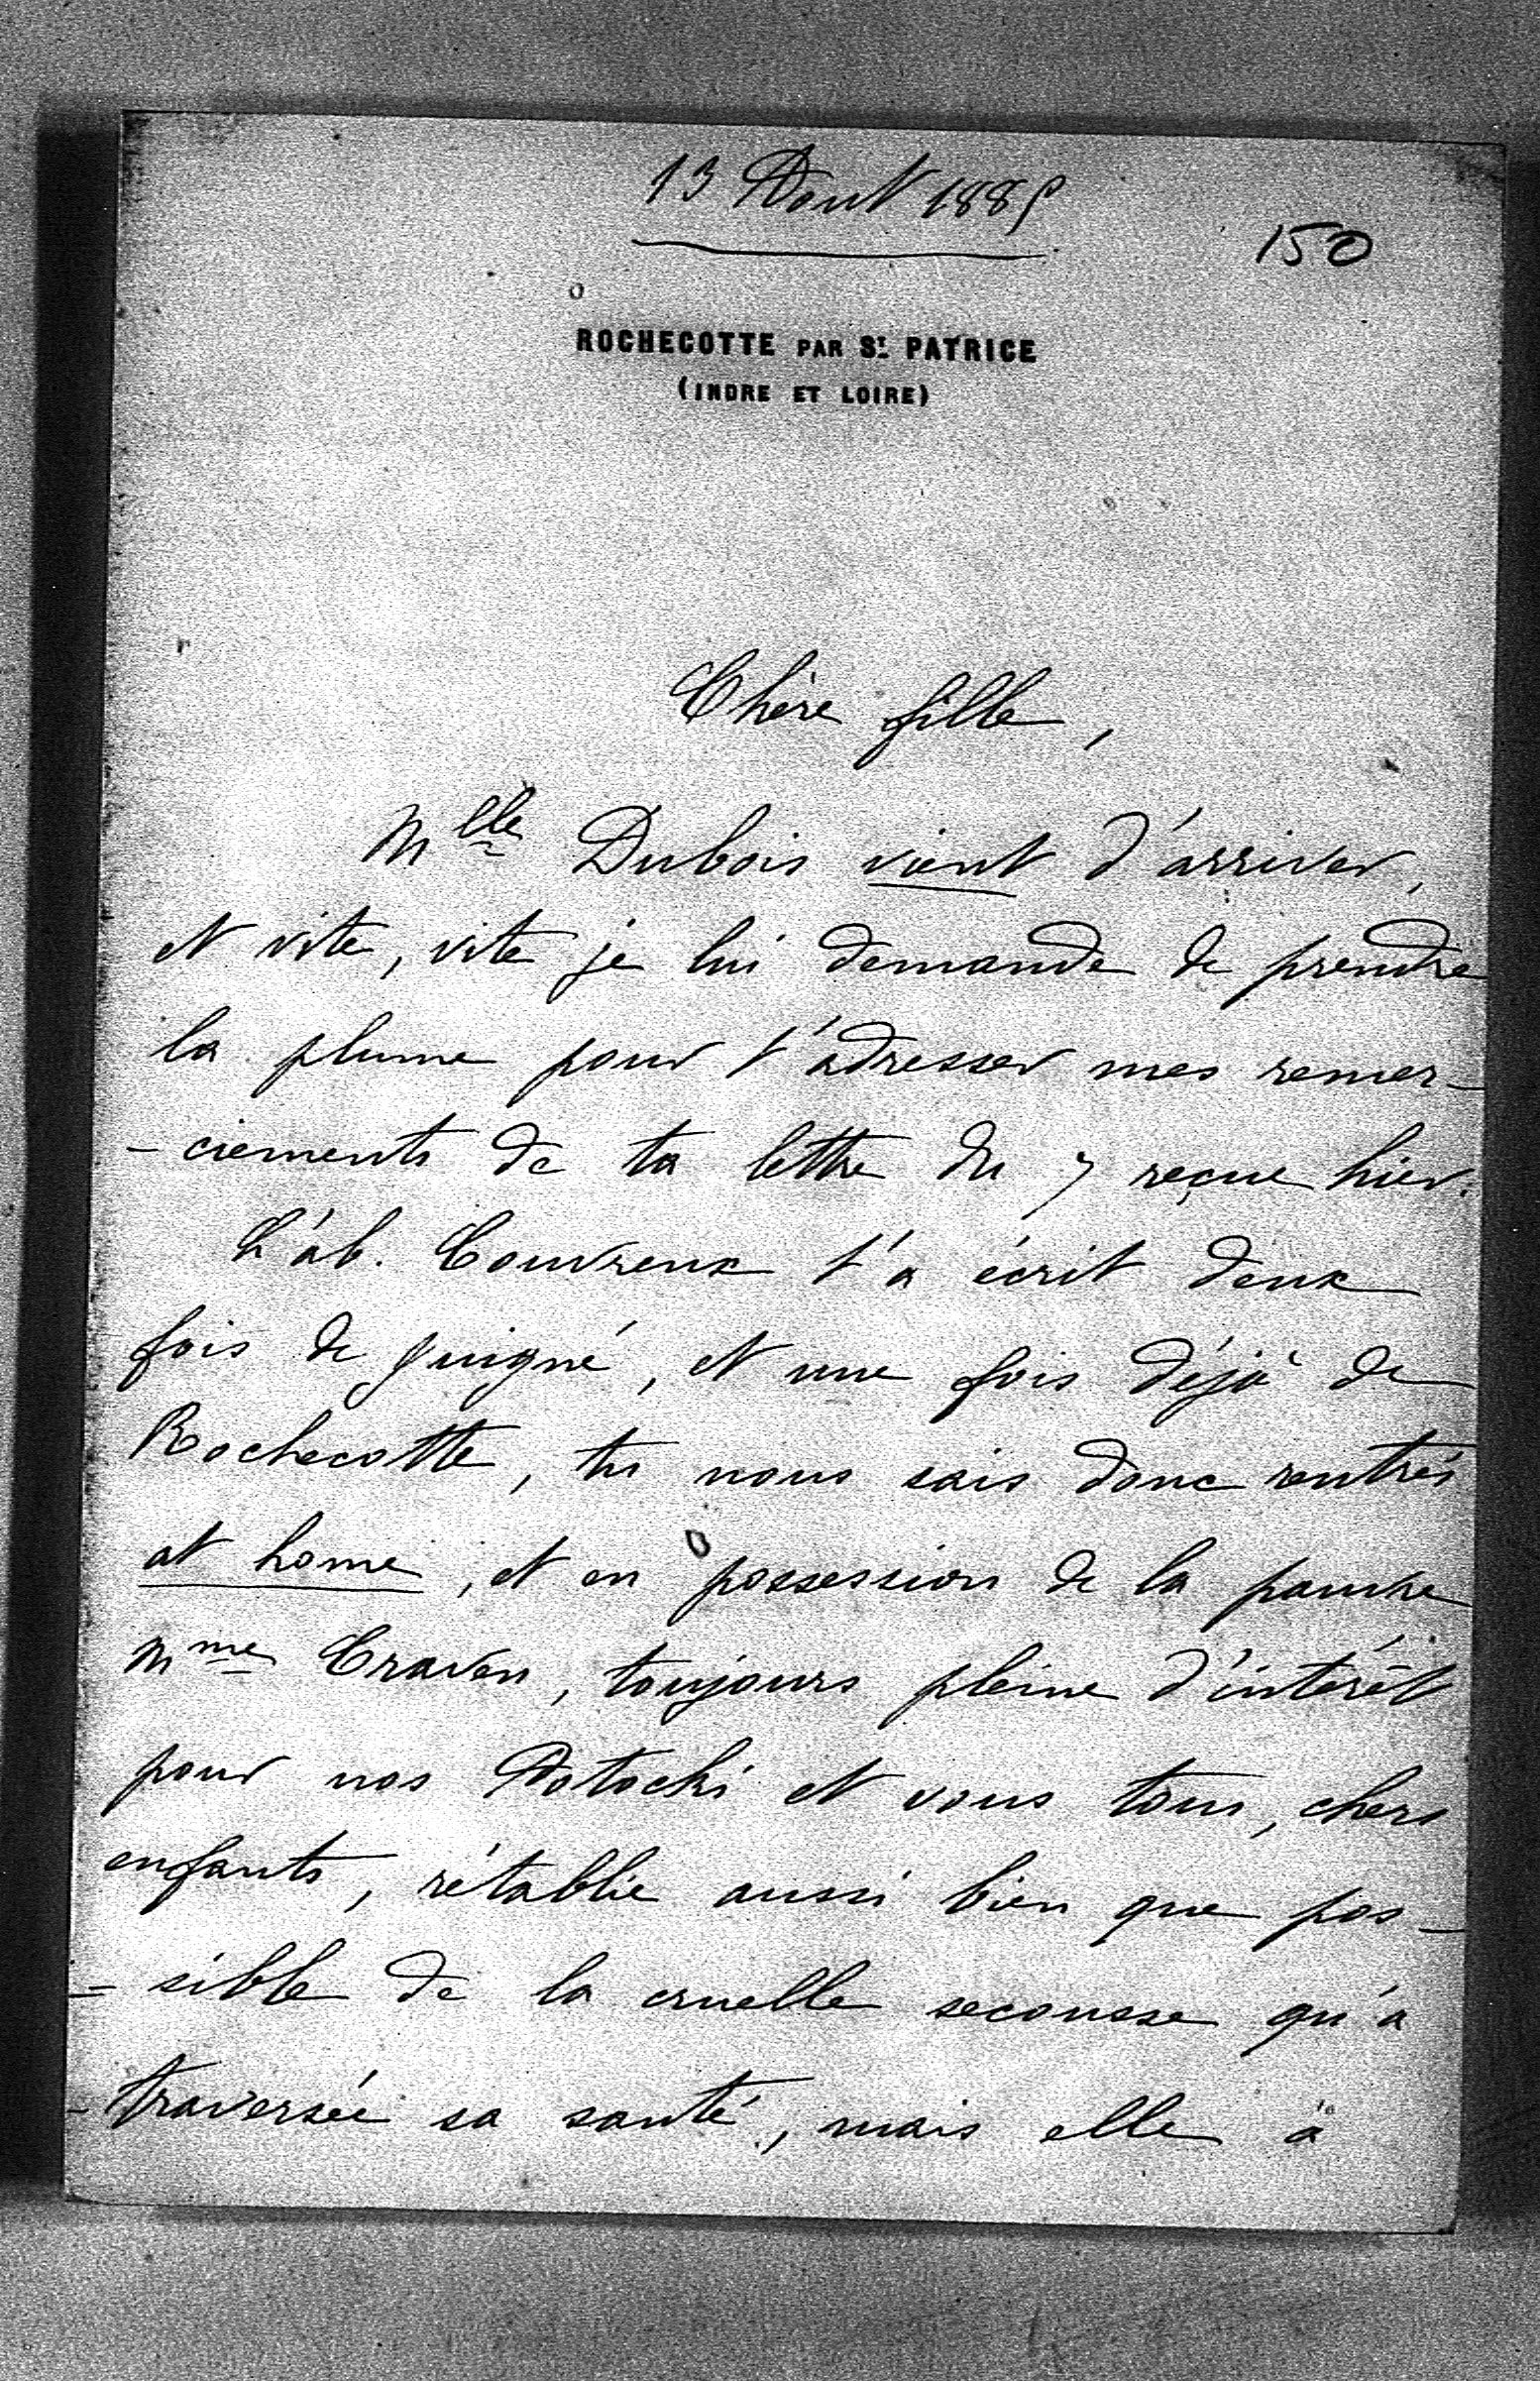 13 Aout 1885
150
ROCHECOTTE PAR ST. PATRICE
(INDRE ET LOIRE)
Chère fille,
Mlle Dubois vient d'arriver,
et vite, vite je lui demande de prendre
la plume pour t'adresser mes remer-
-ciements de ta lettre du 7 reçue hier.
L'ab. Couvreux t'a écrit deux
fois de Juigné, et une fois déjà de
Rochecotte, tu nous sais donc rentrés
at home, et en possession de la pauvre
Mme Craven, toujours pleine d'intérêt
pour nos Potocki et vous tous, chers
enfants, rétablie aussi bien que pos-
=sible de la cruelle secousse qu'a
-traversée sa santé, mais elle a